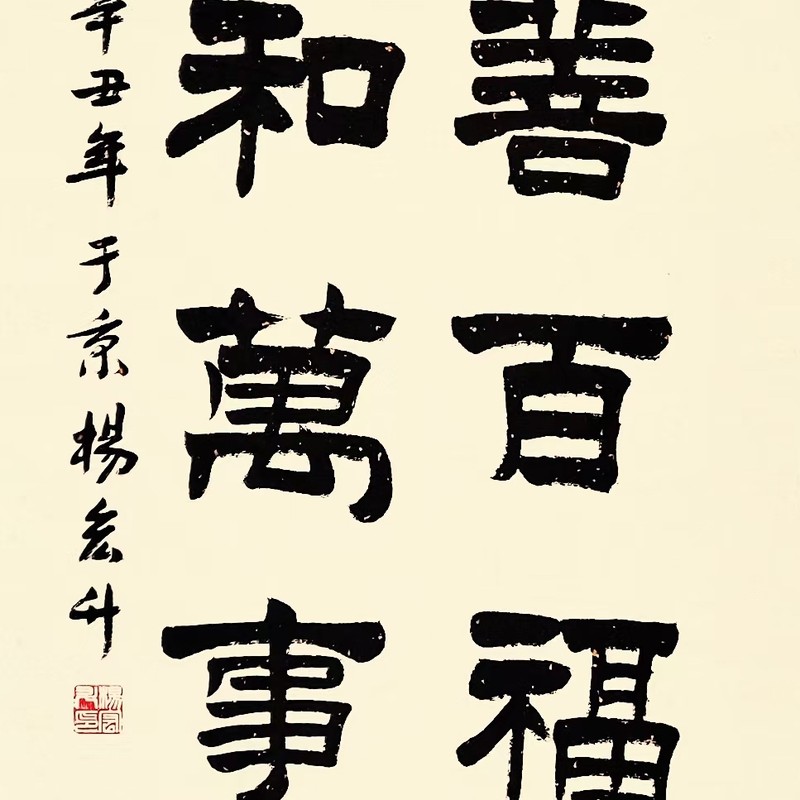 善百福
和萬事
辛丑年于京楊宏升